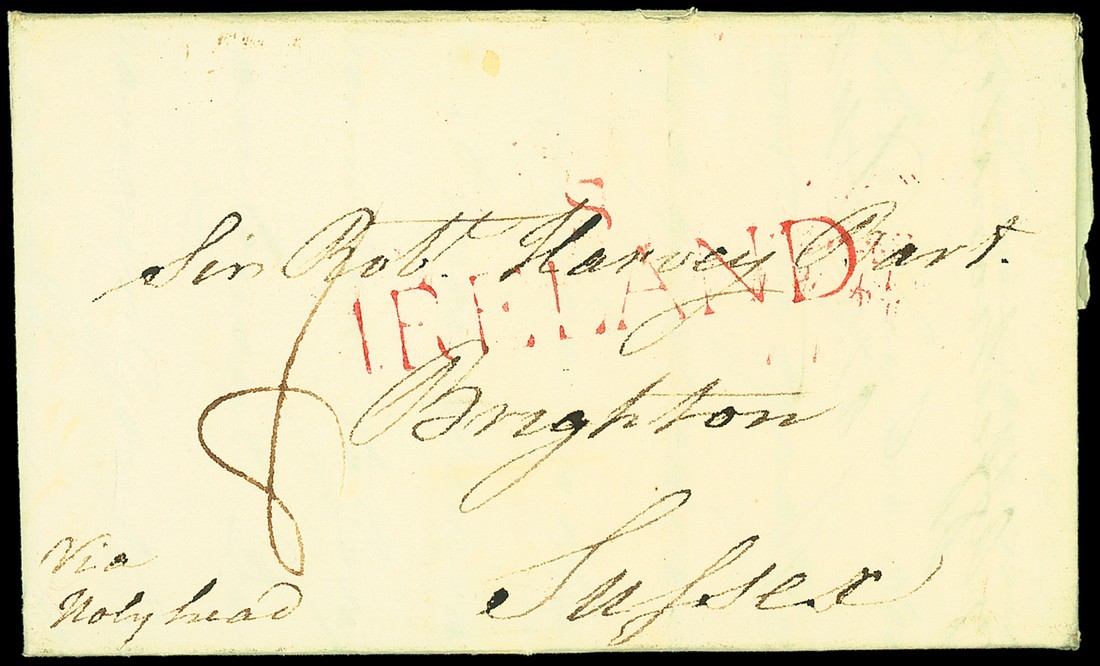 S
IRELAND
Sir Robt. Harvey Bart.
Brighton
Sussex
8
Via
Holyhead